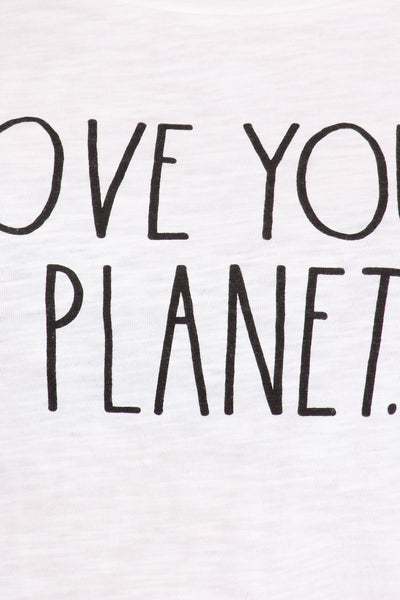 OVE YOU
PLANET.